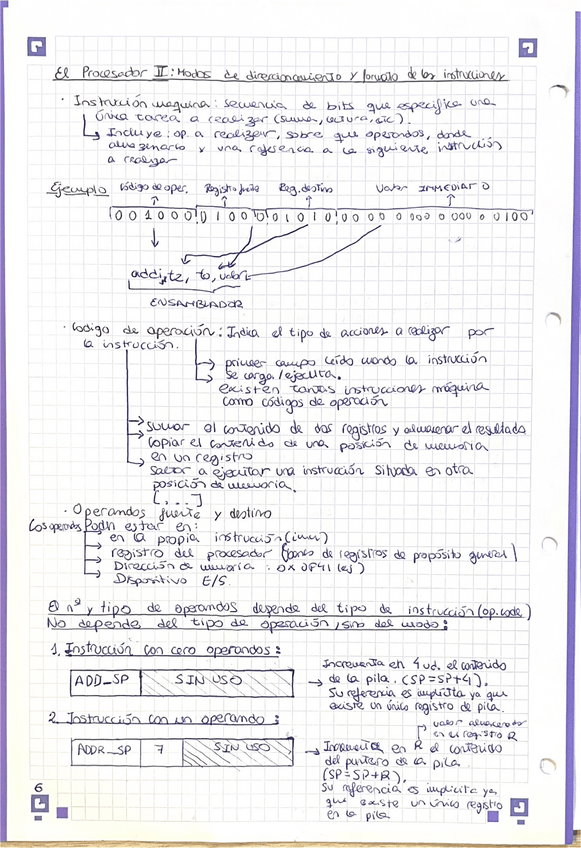 El Procesador II: Modos de direccionamiento y formato de las instrucciones
· Instrucción maquina: secuencia de bits que especifica una
única tarea a realizar (suma, lectura, etc).
↳ Incluye: op. a realizar, sobre que operandos, donde
almacenarlo y una referencia a la siguiente instrucción
a realizar
Ejemplo Código de oper. Registro fuente Reg. destino Valor INMEDIATO
001000 01000 01010 0000 0000 0000 0100
addi t2, t0, valor
ENSAMBLADOR
· Código de operación: Indica el tipo de acciones a realizar por
la instrucción.
→ primer campo leído cuando la instrucción
se carga/ejecuta.
→ existen tantas instrucciones máquina
como códigos de operación
→ sumar el contenido de dos registros y almacenar el resultado
→ copiar el contenido de una posición de memoria
en un registro
→ saltar a ejecutar una instrucción situada en otra
posición de memoria.
[...]
· Operandos fuente y destino
Los operandos Podn estar en:
→ en la propia instrucción (inm)
→ registro del procesador (banco de registros de propósito general)
→ Dirección de memoria: 0x0F41 (ej)
→ Dispositivo E/S.
El nº y tipo de operandos depende del tipo de instrucción (op.code)
No depende del tipo de operación, sino del modo:
1. Instrucción con cero operandos:
ADD_SP SIN USO
→ Incrementa en 4 ud. el contenido
de la pila. (SP=SP+4).
Su referencia es implícita ya que
existe un único registro de pila.
2. Instrucción con un operando:
ADDR_SP 7 SIN USO
valor almacenado
en el registro R
→ Incrementa en R el contenido
del puntero de la pila.
(SP=SP+R),
Su referencia es implícita ya
que existe un único registro
en la pila
6